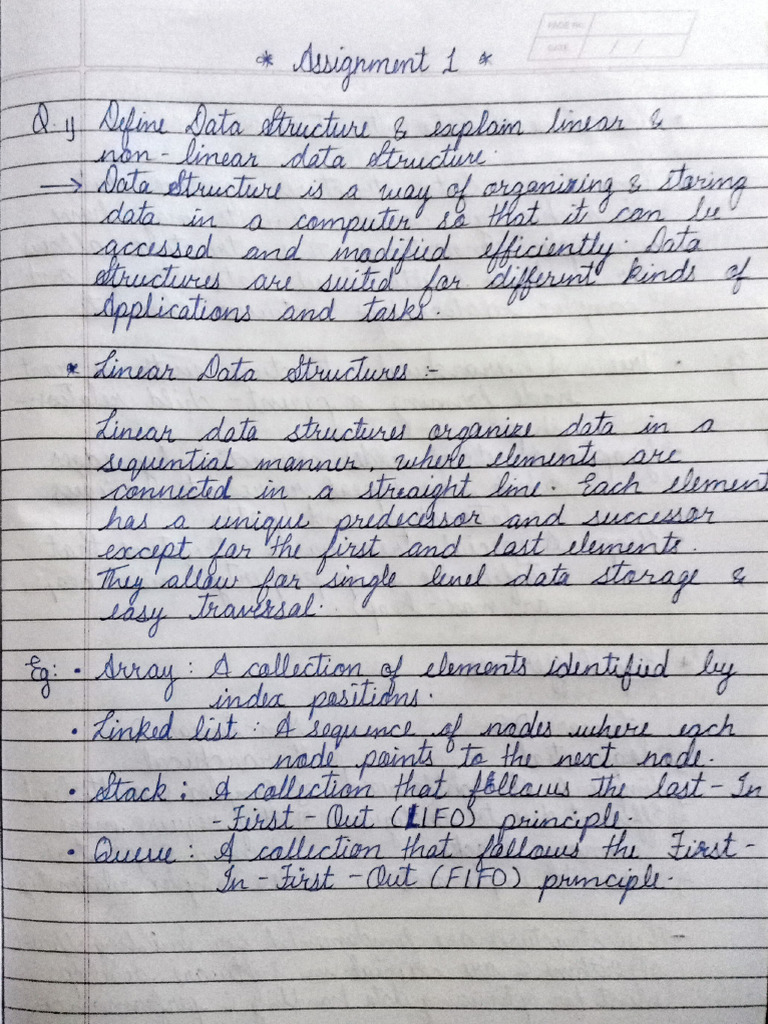 PAGE No.
DATE / /
* Assignment 1 *
Q.1) Define Data Structure & explain linear &
non-linear data structure.
→ Data Structure is a way of organizing & storing
data in a computer so that it can be
accessed and modified efficiently. Data
structures are suited for different kinds of
Applications and tasks.
* Linear Data Structures :-
Linear data structures organize data in a
sequential manner, where elements are
connected in a straight line. Each element
has a unique predecessor and successor
except for the first and last elements.
They allow for single level data storage &
easy traversal.
Eg: • Array : A collection of elements identified by
index positions.
• Linked list : A sequence of nodes where each
node points to the next node.
• Stack : A collection that follows the last-In
-First-Out (LIFO) principle.
• Queue : A collection that follows the First-
In-First-Out (FIFO) principle.